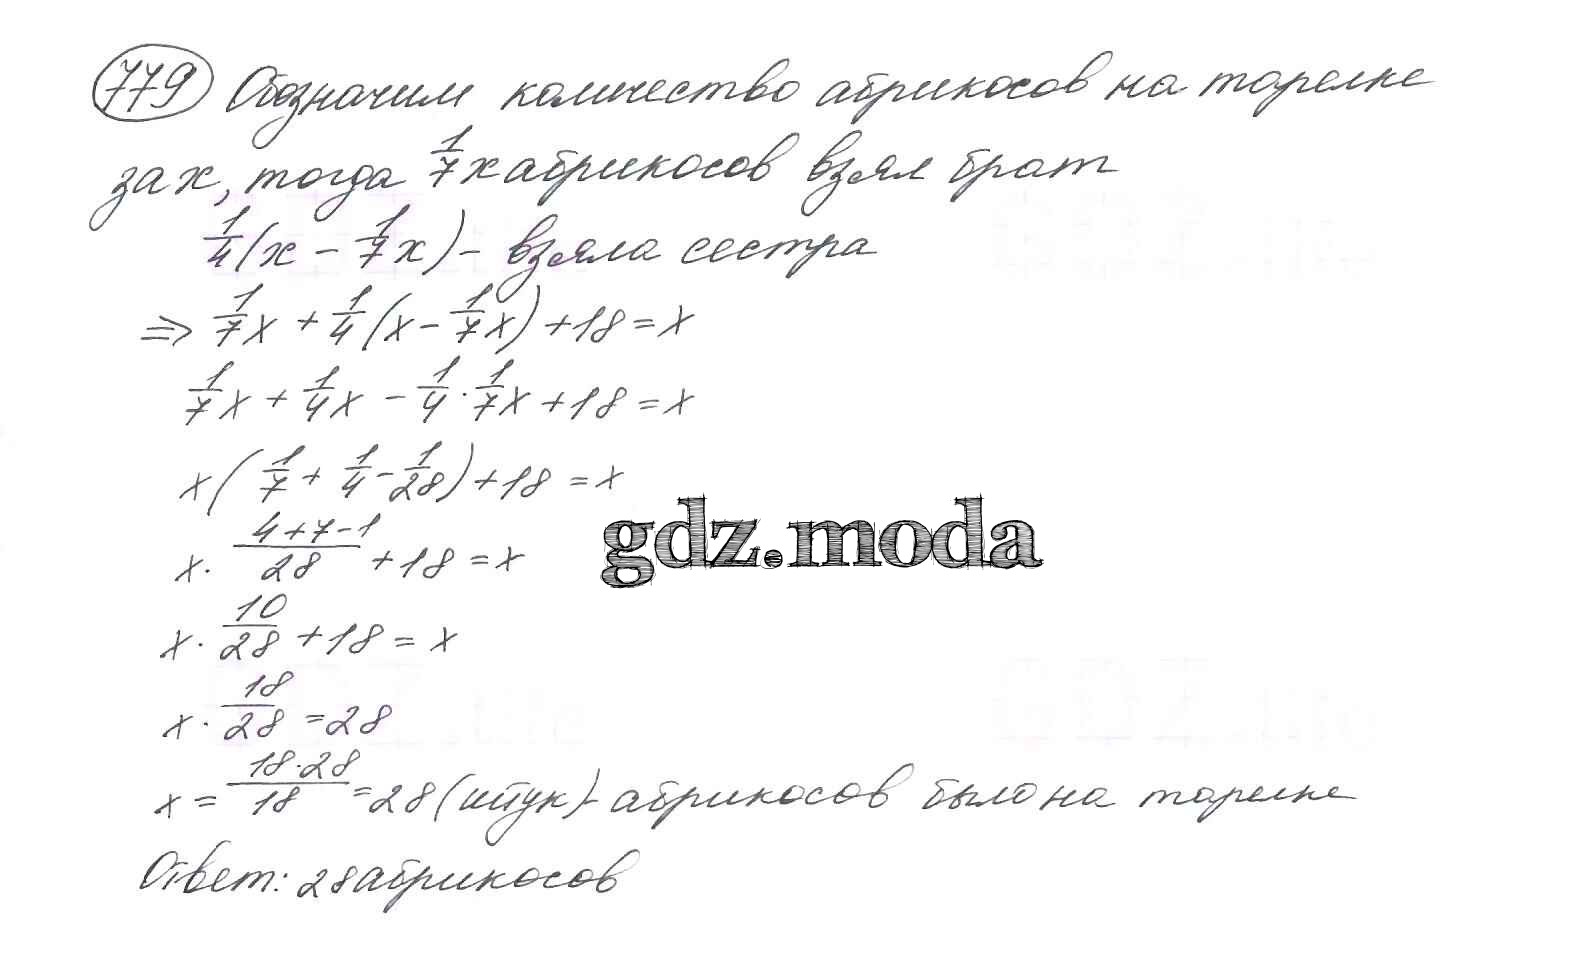 779 Обозначим количество абрикосов на тарелке
за x, тогда 1/7 x абрикосов взял брат
1/4 (x - 1/7 x) - взяла сестра
⇒ 1/7 x + 1/4 (x - 1/7 x) + 18 = x
1/7 x + 1/4 x - 1/4 · 1/7 x + 18 = x
x (1/7 + 1/4 - 1/28) + 18 = x
x · (4+7-1)/28 + 18 = x
gdz.moda
x · 10/28 + 18 = x
x · 18/28 = 28
x = (18·28)/18 = 28 (штук) - абрикосов было на тарелке
Ответ: 28 абрикосов